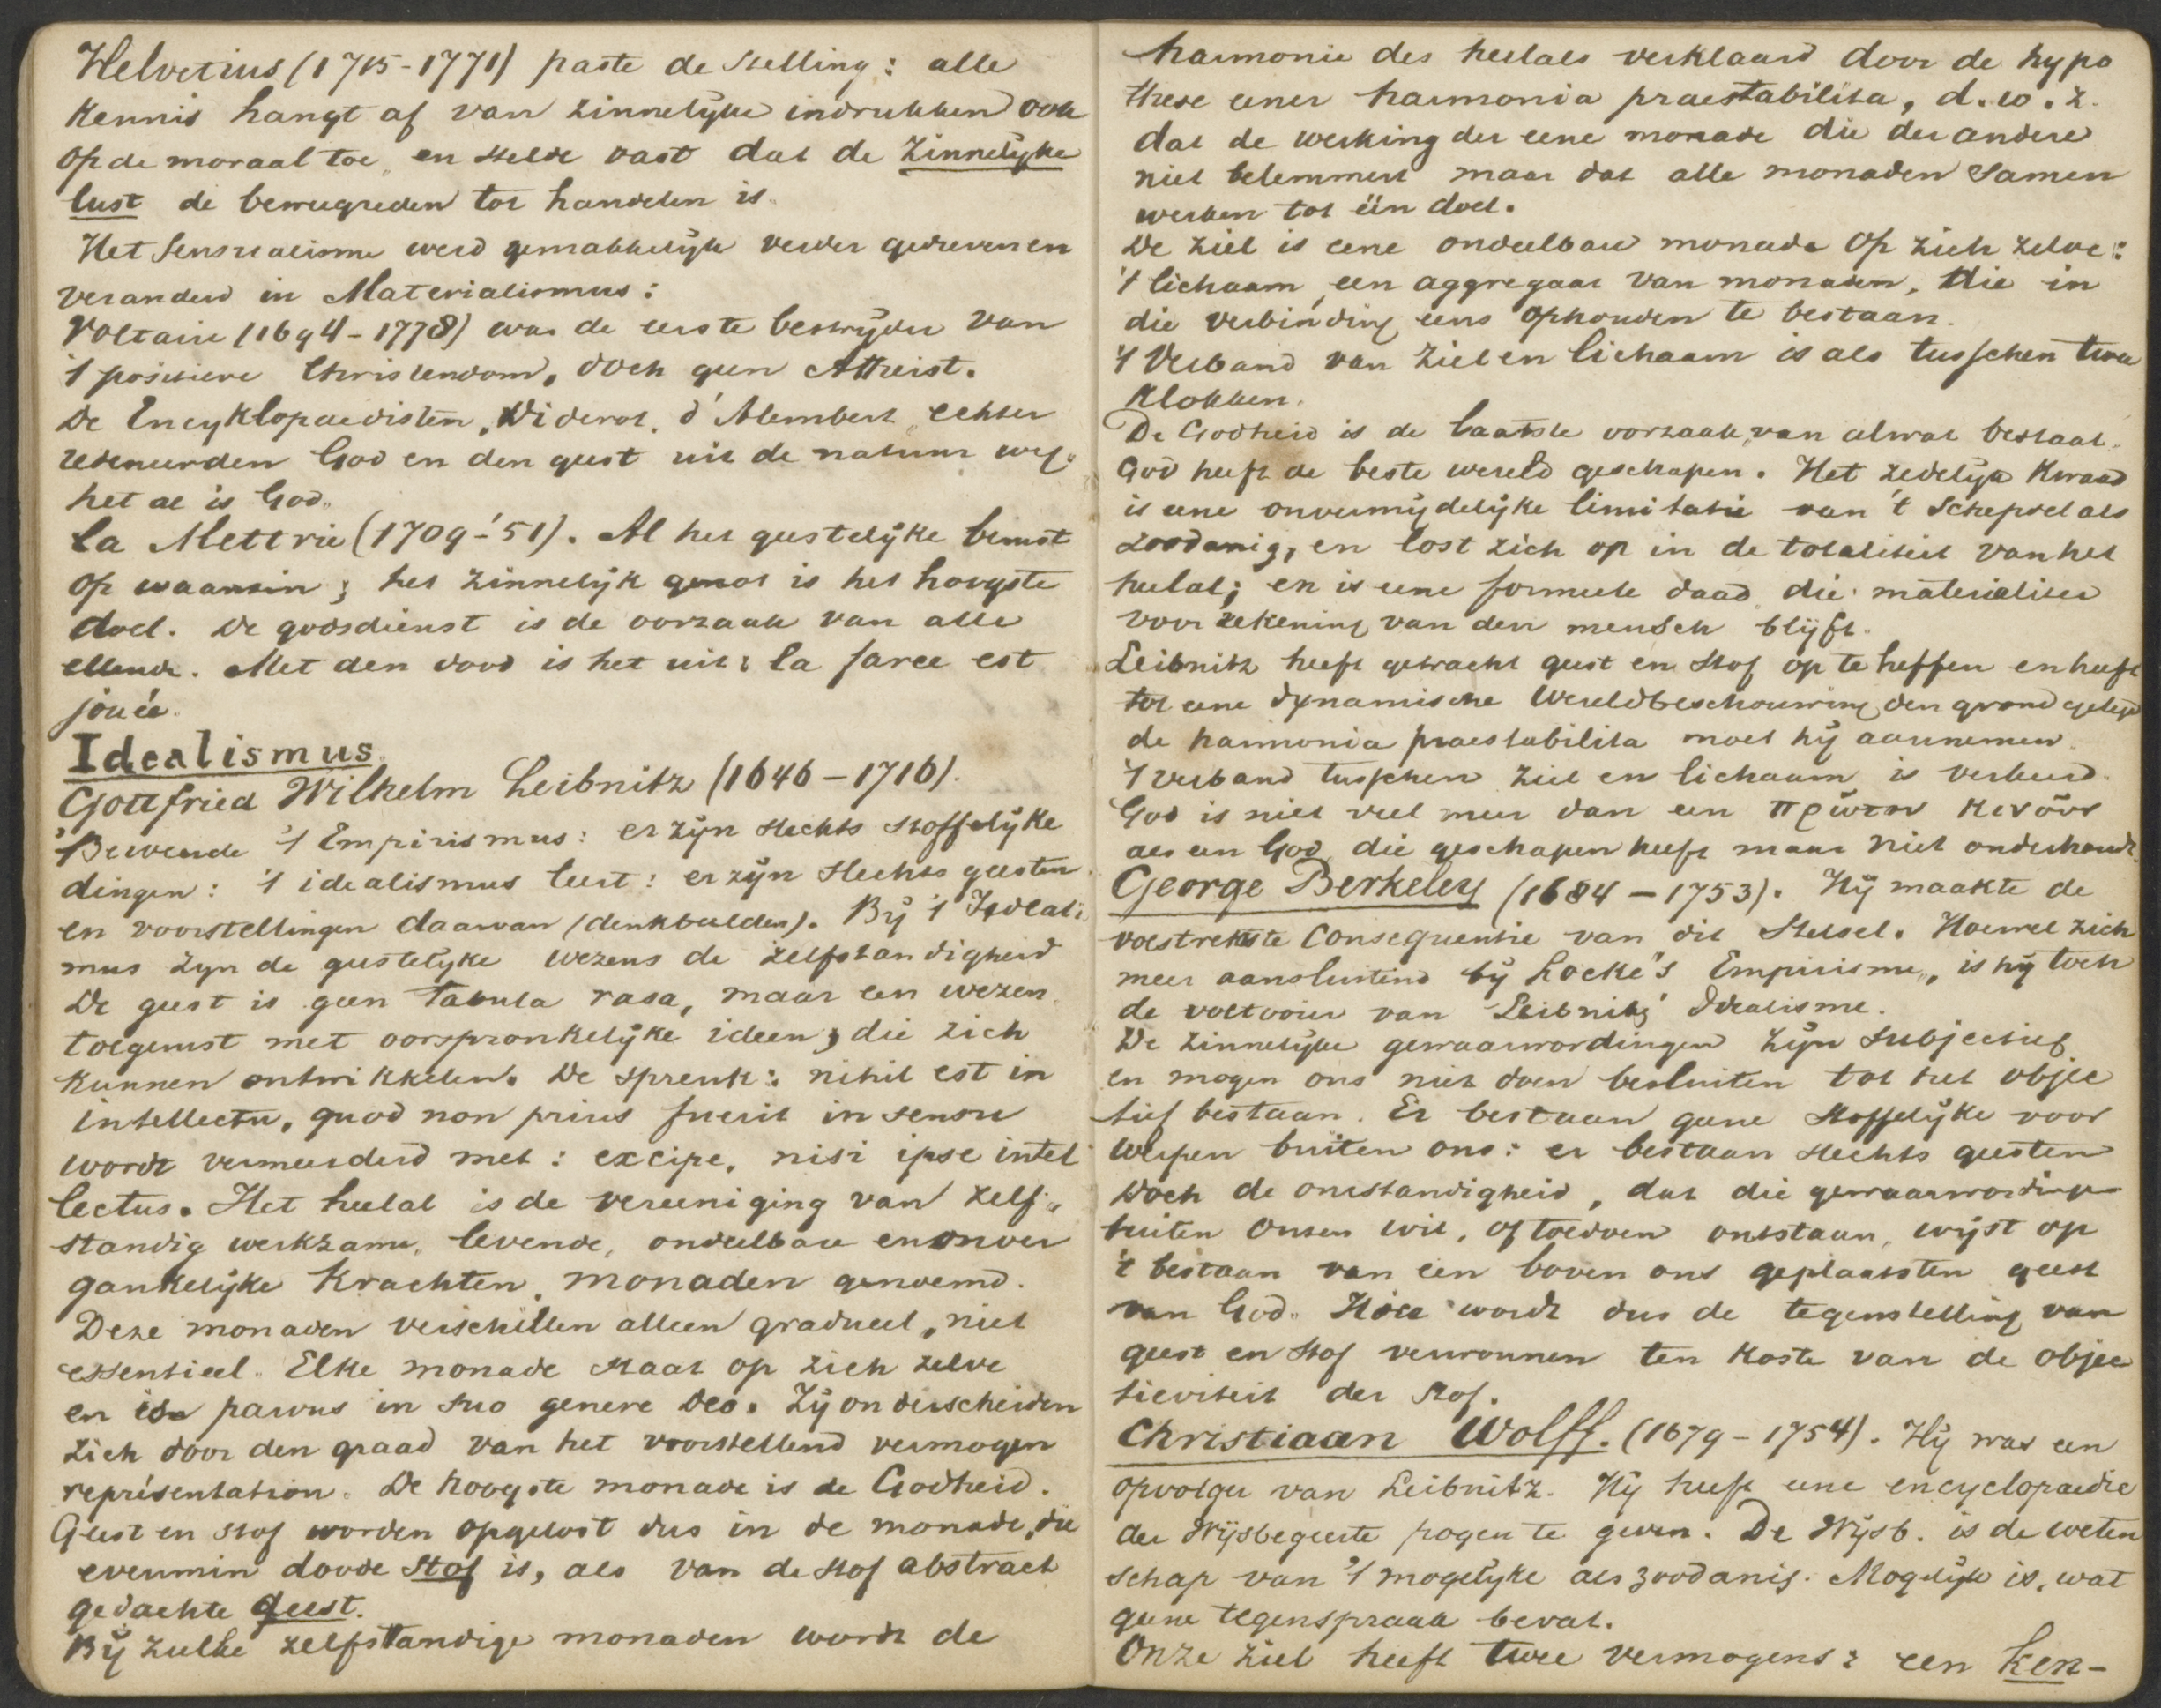 Helvetius (1715-1771) paste de stelling: alle
kennis hangt af van zinnelijke indrukken ook
op de moraal toe, en stelde vast dat de zinnelijke
lust de beweegreden tot handelen is.
Het sensualisme werd gemakkelijk verder gedreven en
veranderd in Materialismus:
Voltaire (1694-1778) was de eerste bestrijder van
't positieve Christendom, doch geen Atheist.
De Encyklopaedisten, Diderot, d'Alembert echter
redeneerden God en den geest uit de natuur weg.
het al is God.
La Mettrie (1709-'51). Al het geestelijke berust
op waanzin; het zinnelijk genot is het hoogste
doel. De godsdienst is de oorzaak van alle
ellende. Met den dood is het uit: la farce est
jouée.
Idealismus.
Gottfried Wilhelm Leibnitz (1646-1716).
Beweerde 't Empirismus: er zijn slechts stoffelijke
dingen: 't idealismus leert: er zijn slechts geesten
en voorstellingen daarvan (denkbeelden). Bij 't Ideali
mus zijn de geestelijke wezens de zelfstandigheid
De geest is geen tabula rasa, maar een wezen
toegerust met oorspronkelijke ideen, die zich
kunnen ontwikkelen. De spreuk: nihil est in
intellectu, quod non prius fuerit in sensu
wordt vermeerderd met: excipe, nisi ipse intel
lectus. Het heelal is de vereeniging van zelf-
standig werkzame, levende, ondeelbare en onver
gankelijke Krachten, monaden genoemd.
Deze monaden verschillen alleen gradueel, niet
essentieel. Elke monade staat op zich zelve
en is parvus in suo genere deo. Zij onderscheiden
zich door den graad van het voorstellend vermogen
représentation. De hoogste monade is de Godheid.
Geest en stof worden opgelost dus in de monade, die
evenmin doode stof is, als van de stof abstract
gedachte geest.
Bij zulke zelfstandige monaden wordt de
harmonie des heelals verklaard door de hypo
these eener harmonia praestabilita, d.w.z.
dat de werking der eene monade die der andere
niet belemmert maar dat alle monaden samen
werken tot één doel.
De ziel is eene ondeelbare monade op zich zelve:
't lichaam, een aggregaat van monaden, die in
die verbinding eens ophouden te bestaan.
't Verband van ziel en lichaam is als tusschen twee
klokken.
De Godheid is de laatste oorzaak van alwat bestaat.
God heeft de beste wereld geschapen. Het zedelijk kwaad
is eene onvermijdelijke limitatie van 't schepsel als
zoodanig, en lost zich op in de totaliteit van het
heelal; en is eene formeele daad die materialiter
voor rekening van den mensch blijft.
Leibnitz heeft getracht geest en stof op te heffen en heeft
tot eene dynamische wereldbeschouwing den grond gelegd
de harmonia praestabilita moet hij aannemen.
't verband tusschen ziel en lichaam is verkeerd.
God is niet veel meer dan een πρῶτον κινοῦν
als een God die geschapen heeft maar niet onderhoudt.
George Berkeley (1684-1753). Hij maakte de
volstrekste consequentie van dit stelsel. Hoewel zich
meer aansluitend bij Locke's Empirisme, is hij toch
de voltooier van Leibnitz' Idealisme.
De zinnelijke gewaarwordingen zijn subjectief
en mogen ons niet doen besluiten tot het objec
tief bestaan. Er bestaan geene stoffelijke voor
werpen buiten ons: er bestaan slechts geesten
Doch de omstandigheid, dat die gewaarwordingen
buiten onzen wil, of toedoen ontstaan, wijst op
't bestaan van een boven ons geplaatsten geest
van God. Hier wordt dus de tegenstelling van
geest en stof verwonnen ten koste van de objec
tieviteit der stof.
Christiaan Wolff. (1679-1754). Hij was een
opvolger van Leibnitz. Hij heeft eene encyclopaedie
der Wijsbegeerte pogen te geven. De Wijsb. is de weten
schap van 't mogelijke als zoodanig. Mogelijk is, wat
geene tegenspraak bevat.
Onze ziel heeft twee vermogens: een ken-